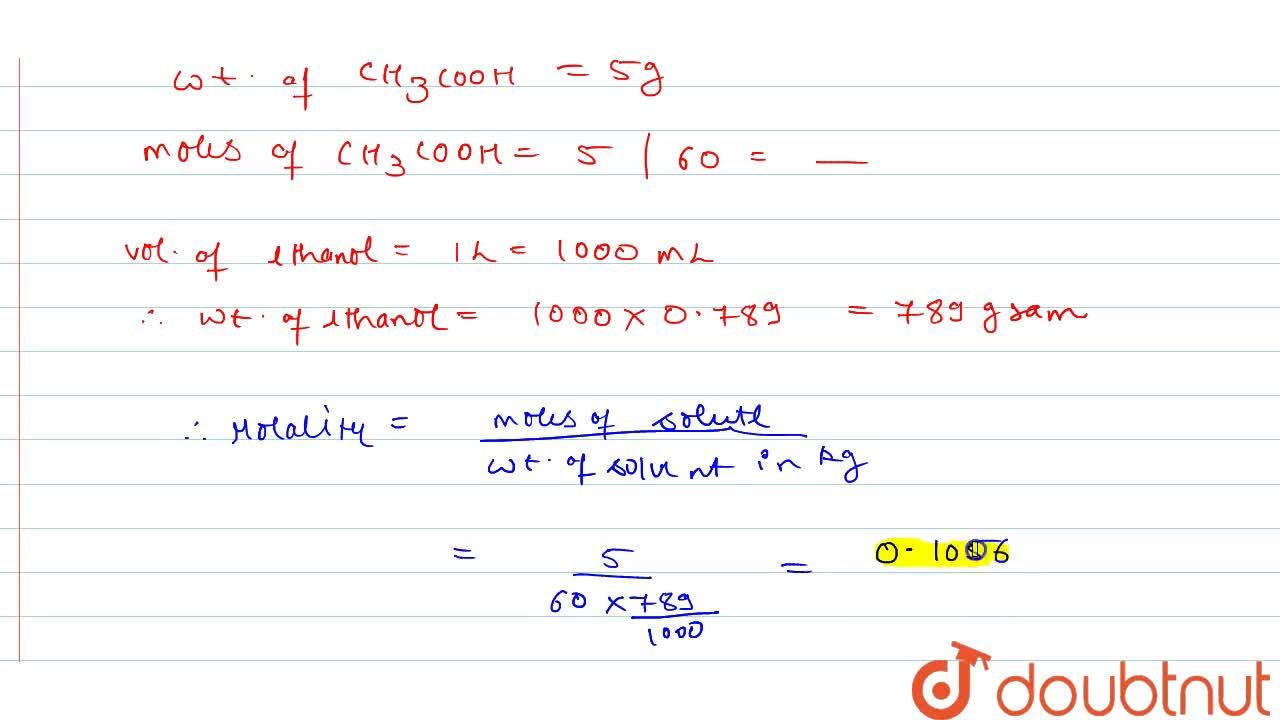 wt. of CH3COOH = 5g
moles of CH3COOH = 5 | 60 = __
vol. of ethanol = 1L = 1000 mL
∴ wt. of ethanol = 1000 × 0.789 = 789 gram
∴ Molality = moles of solute
wt. of solvent in kg
= 5
60 × 789
1000
= 0.1056
doubtnut